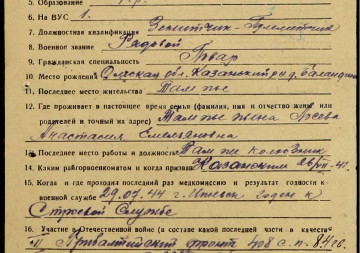 5. Образование
6. На ВУС 1.
7. Должностная квалификация Зенитчик-Пулеметчик
8. Военное звание Рядовой
9. Гражданская специальность
10. Место рождения Омская обл. Казанский р-н д.
11. Последнее место жительства Там же
12. Где проживает в настоящее время семья (фамилия, имя и отчество жены или
родителей и точный их адрес) Там же жена
Анастасия Емельяновна
13. Последнее место работы и должность Там же колхозник
14. Каким райгорвоенкоматом и когда призван Казанским
15. Когда и где проходил раз медкомиссию и результат годности к
военной службе 29.07.44 г. годен к
Строевой Службе
16. Участие в Отечественной войне (в составе какой последней части и в качестве
Прибалтийский фронт 408 а.п.